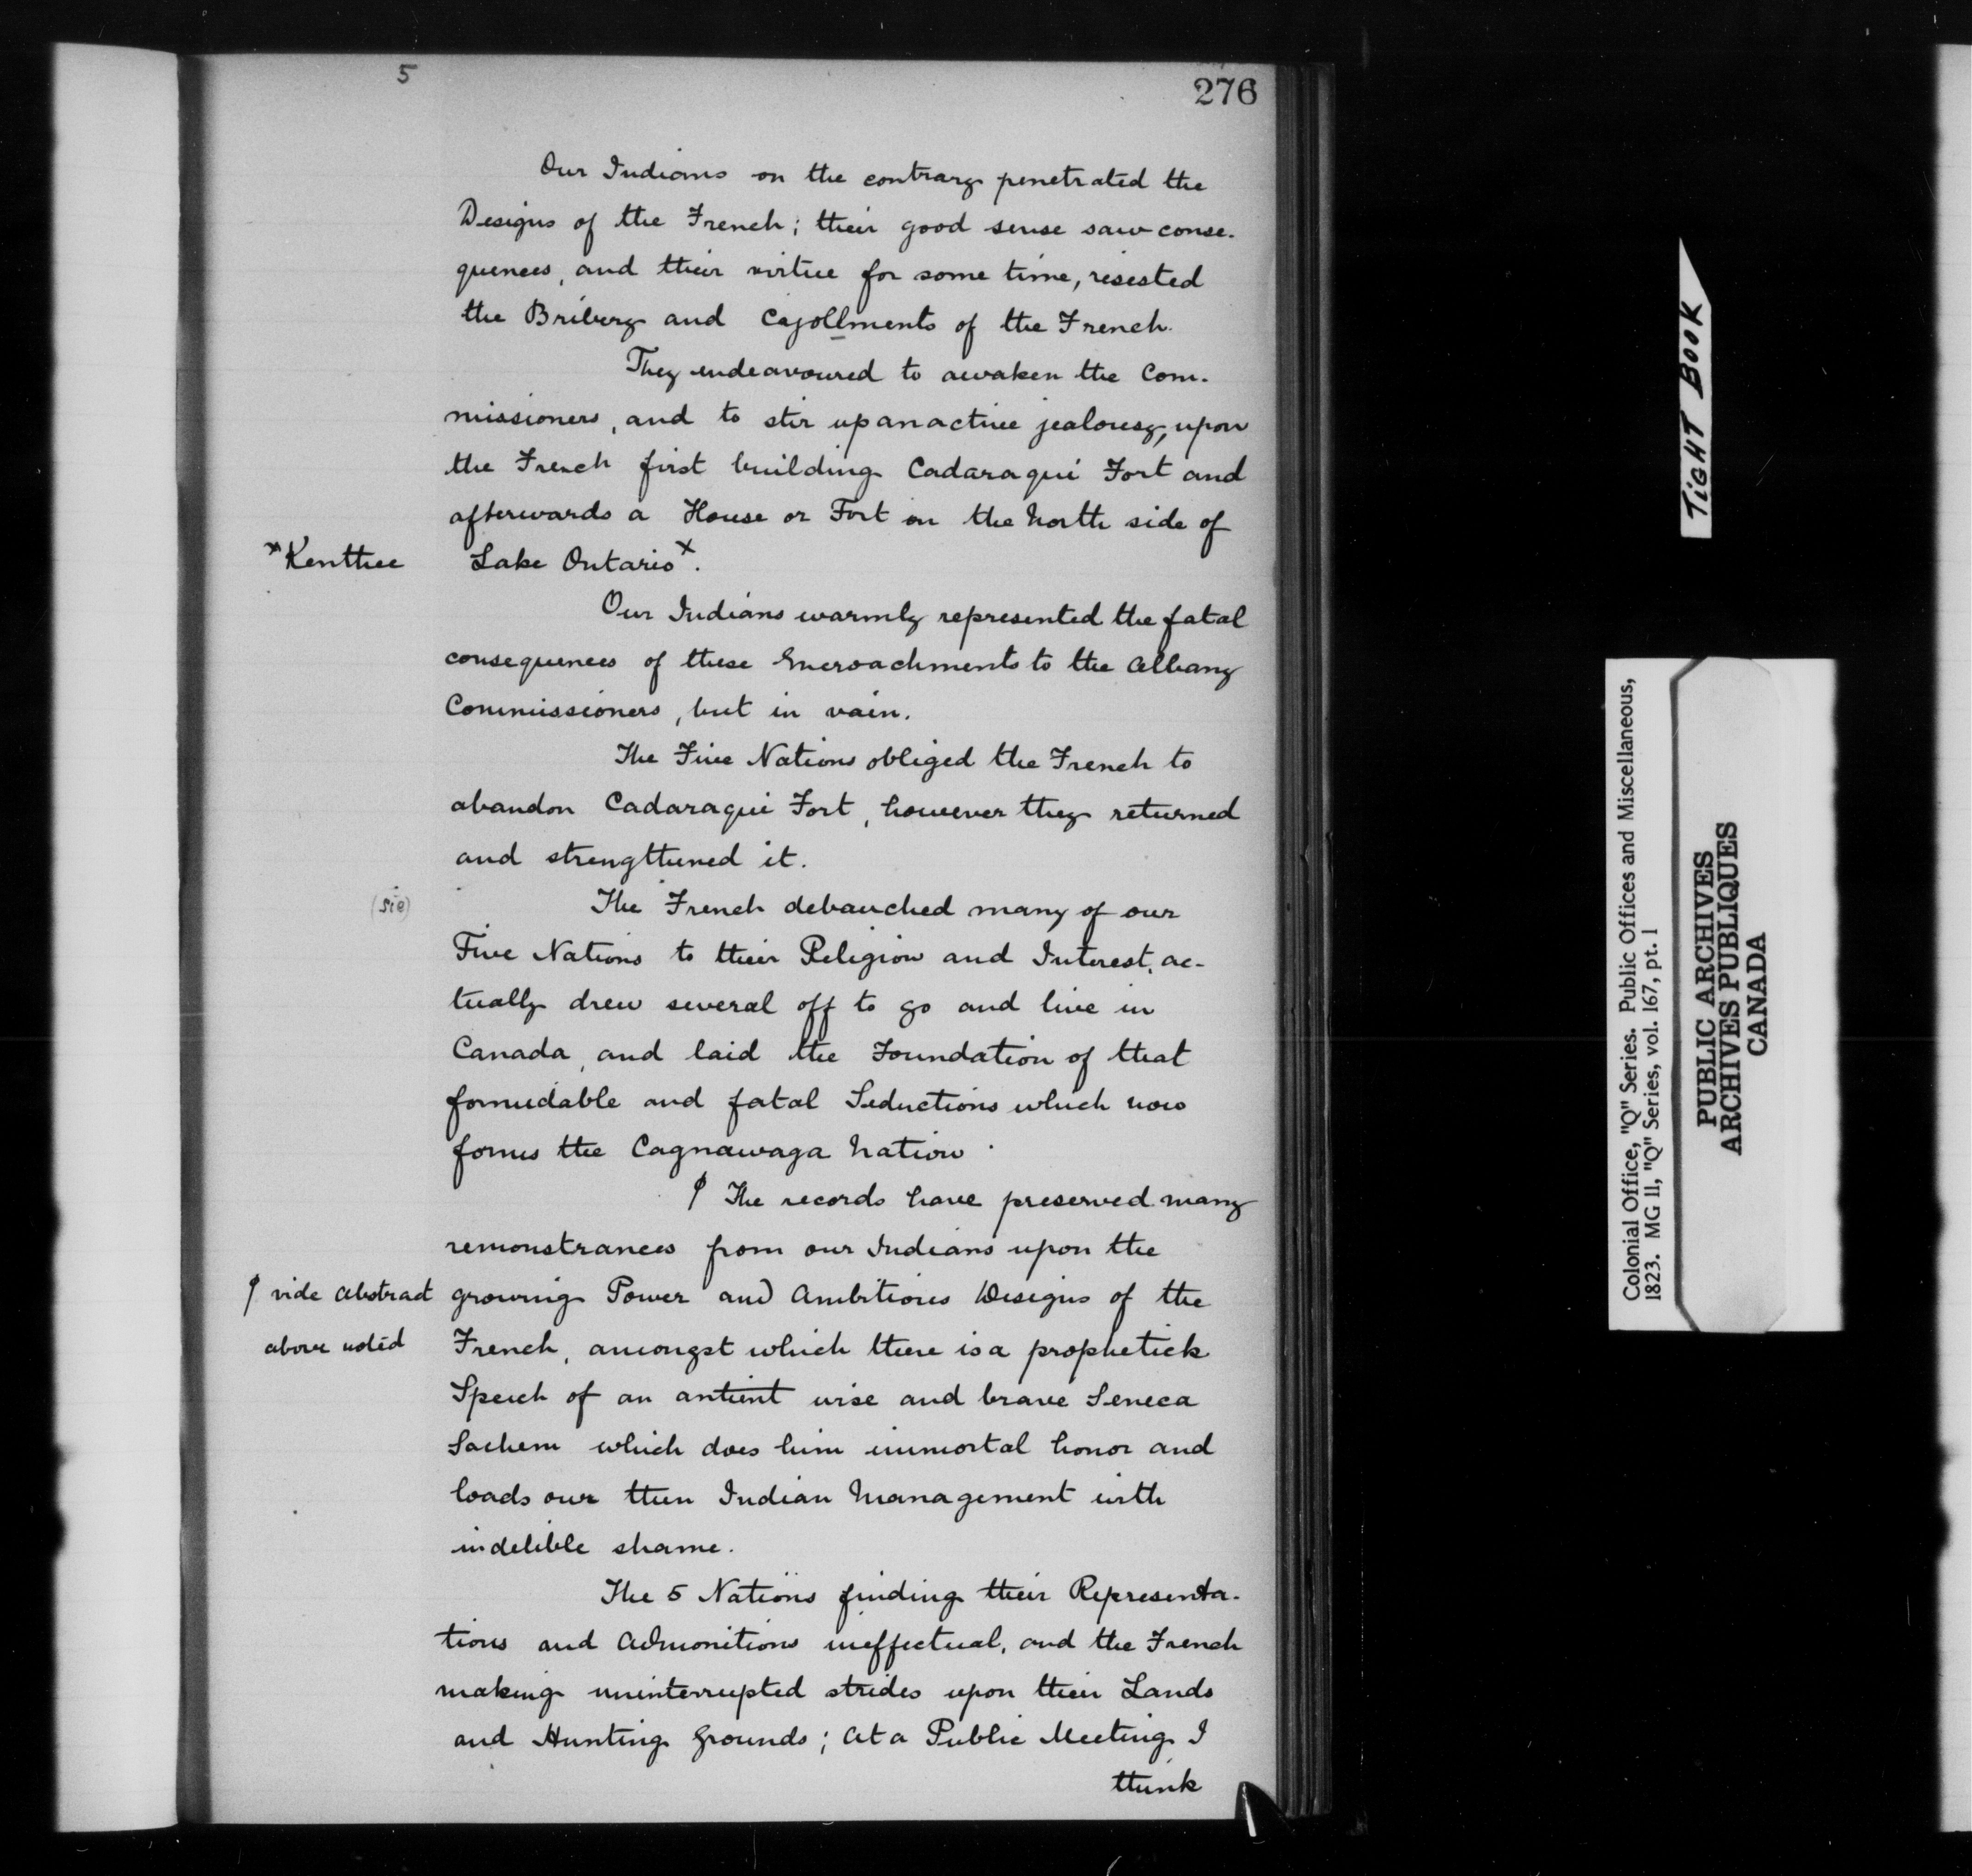 5
276
Our Indians on the contrary penetrated the
Designs of the French; their good sense saw conse-
quences, and their virtue for some time, resisted
the Bribery and Cajollments of the French.
They endeavoured to awaken the Com-
missioners, and to stir up an active jealousy, upon
the French first building Cadaraqui Fort and
afterwards a House or Fort on the North side of
x Kenthee
Lake Ontario x.
Our Indians warmly represented the fatal
consequences of these Encroachments to the Albany
Commissioners, but in vain.
The Five Nations obliged the French to
abandon Cadaraqui Fort, however they returned
and strengthened it.
(sic)
The French debauched many of our
Five Nations to their Religion and Interest, ac-
tually drew several off to go and live in
Canada, and laid the Foundation of that
formidable and fatal Seductions which now
forms the Cagnawaga Nation.
The records have preserved many
remonstrances from our Indians upon the
vide Abstract
growing Power and Ambitious Designs of the
above noted
French, amongst which there is a prophetick
Speech of an antient wise and brave Seneca
Sachem which does him immortal honor and
loads our then Indian Management with
indelible shame.
The 5 Nations finding their Representa-
tions and Admonitions ineffectual, and the French
making uninterrupted strides upon their Lands
and Hunting Grounds; At a Public Meeting I
think
TIGHT BOOK
Colonial Office, "Q" Series. Public Offices and Miscellaneous,
1823. MG 11, "Q" Series, vol. 167, pt. 1
PUBLIC ARCHIVES
ARCHIVES PUBLIQUES
CANADA